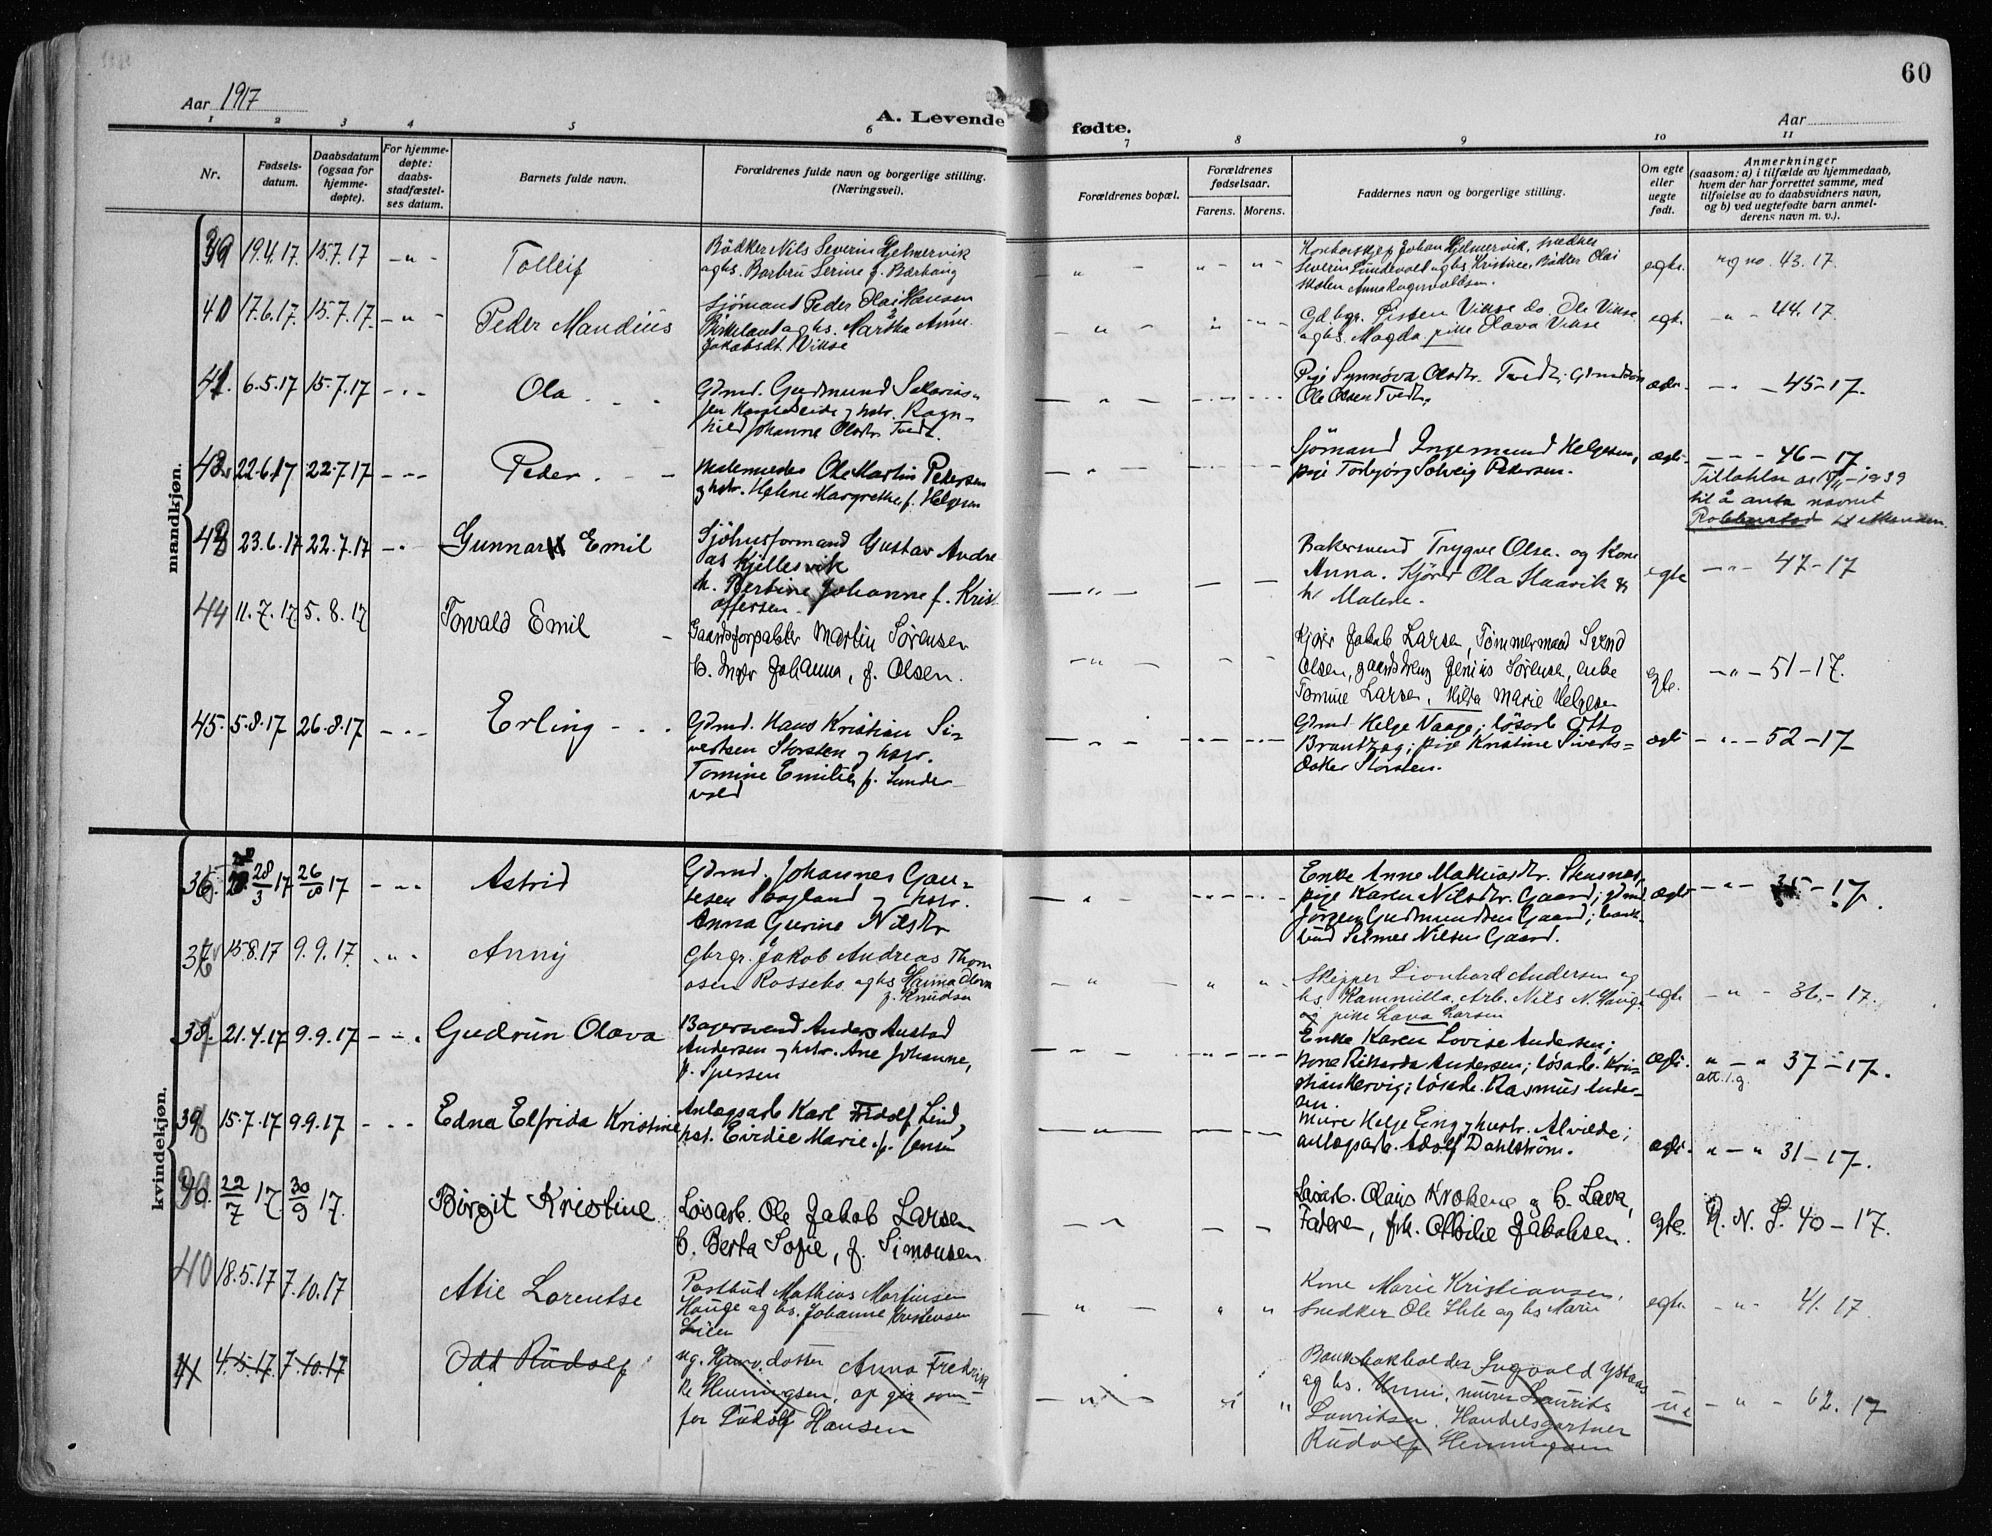 60
Aar 1917
A. Levende fødte.
Aar
1 2 3 4 5 6 7 8 9 10 11
Nr.
Fødsels-
datum.
Daabsdatum
(ogsaa for
hjemme-
døpte).
For hjemme-
døpte:
daabs-
stadfæstel-
ses datum.
Barnets fulde navn.
Forældrenes fulde navn og borgerlige stilling.
(Næringsvei).
Forældrenes bopæl.
Forældrenes
fødselsaar.
Farens. Morens.
Faddernes navn og borgerlige stilling.
Om egte
eller
uegte
født.
Anmerkninger
(saasom: a) i tilfælde av hjemmedaab,
hvem der har forrettet samme, med
tilføielse av to daabsvidners navn,
og b) ved uegtefødte barn anmel-
derens navn m. v.).
mandkjøn.
39 19.4.17. 15.7.17 - " - Tolleif
Bødker Nils Severin Hjelmervik
og hs. Barbru Serine f.
" - " - " -
Johan Hjelmervik, snedker
Severin Sundevold og hs. Kristine, Bødker Olai
Anna Ragnvaldsen.
egte. reg no. 43.17.
40 17.6.17. 15.7.17. - " - Peder Mandius
Sjømand Peder Olai Hansen
Birkeland og hs. Martha Anne
Jakobsdt. Vikse
Gdbgr. Vikse do. Ole Vikse
og hs. Magda, pike Olava Vikse
egte. - " - 44.17.
41. 6.5.17 15.7.17 - " - Ola
Gdmd. Gudmund
og hstr. Ragn-
hild Johanne Olsdtr. Tvedt.
Pige Synnøva Olsdtr. Tvedt;
Ole Olsen Tvedt,
ægte. - " - 45-17.
42 22.6.17 22.7.17 - " - Peder
Ole Martin Pedersen
og hstr. Helene Margrethe f. Helgesen
Sjømand Ingemund Helgesen,
pige Torbjørg Solveig Pedersen.
ægte. - " - 46-17
Tillatelse av 1939
til å anta navnet
43 23.6.17 22.7.17 - " - Gunnar Emil
Sjøhusformand Gustav Andre
as Kjellesvik
h. Bertine Johanne f. Krist
offersen.
Bakersvend Trygve Olsen og Kone
Anna. Kjører Ola Haavik &
h. Malene.
egte - " - 47-17
44 11.7.17. 5.8.17 Torvald Emil
Gaardsforpakter Martin Sørensen
h. Inger Johanna, f. Olsen.
Kjører Jakob Larsen, Tømmermand Svend
Olsen, gaardsdreng Jenius Sørensen, enke
Tomine Larsen, Hilda Marie Helgesen
egte. - " - 51-17.
45. 5.8.17 26.8.17 - " - Erling
Gdmd. Hans Kristian Si-
vertsen Storsten og hstr.
Tomine Emilie f. Sunde-
vold
Gdmd. Helge Vaage; løsarb. Otto
Brantzeg; pige Kristine Siverts-
datter Storsten.
ægte - " - 52-17
kvindekjøn.
36 28/3 17 26/8 17 - " - Astrid
Gdmd. Johannes Gau-
tesen Skogland og hstr.
Anna Gurine Nilsdtr
Enke Anne Mathiasdtr. Stensnes,
pige Karen Nilsdtr. Gaard; gdmd.
Jørgen Gudmundsen Gaard;
Selmer Nilsen Gaard.
ægte - " - 35-17.
37 15.8.17 9.9.17. - " - Anny
Gbrgr. Jakob Andreas Thom
asen Rossebø og hs Olava
f. Knudsen
Skipper Lionhard Andersen og
hs Kammilla, Arb. Nils N. Hauge
og pike Lava Larsen
egte - " - 36-17.
38. 21.4.17 9.9.17 - " - Gudrun Olava
Bagersvend Anders Austad
Andersen og hstr. Ane Johanne,
f. Ipersen
Enke Karen Lovise Andersen;
Kone Rikarda Andersen; løsarb. Kris
tian Kervig; løsarb. Rasmus Ander-
sen.
ægte. " - " 37-17.
att. 1. g.
39 15.7.17 9.9.17 - " - Edna Elfrida Kristine
Anlægsarb Karl Fridolf Lind,
hst. Eirdie Marie f. Jensen
Murer Helge Eing og hustr. Alvilde;
anlægsarb. Adolf Dahlstrøm.
ægte. " - " 31-17.
40. 22/7 17 30/9 17. Birgit Kristine
Løsarb. Ole Jakob Larsen
h. Berta Sofie, f. Simonsen.
Løsarb. Olaus Krokene og h. Lava,
Faderen, frk. Ottilie Jakobsen.
egte. R. N. S. 40-17.
40 18.5.17 7.10.17 Atie Lorentse
Postbud Mathias Martinsen
Hauge og hs. Johanne Kristensen
Lien
Kone Marie Kristiansen,
Snedker Ole Ihle og hs Marie
egte. - " - 41.17
41 4.5.17 7.10.17 Odd Rudolf
ug. datter Anna Fredrik
ke Henningsen, opgir som
far Rudolf Hansen
Bankbokholder Ingvald Ystaas
og hs. Unni, murer Laurits
Lauritsen, Handelsgartner
Rudolf Henningsen
ue - " - 62.17